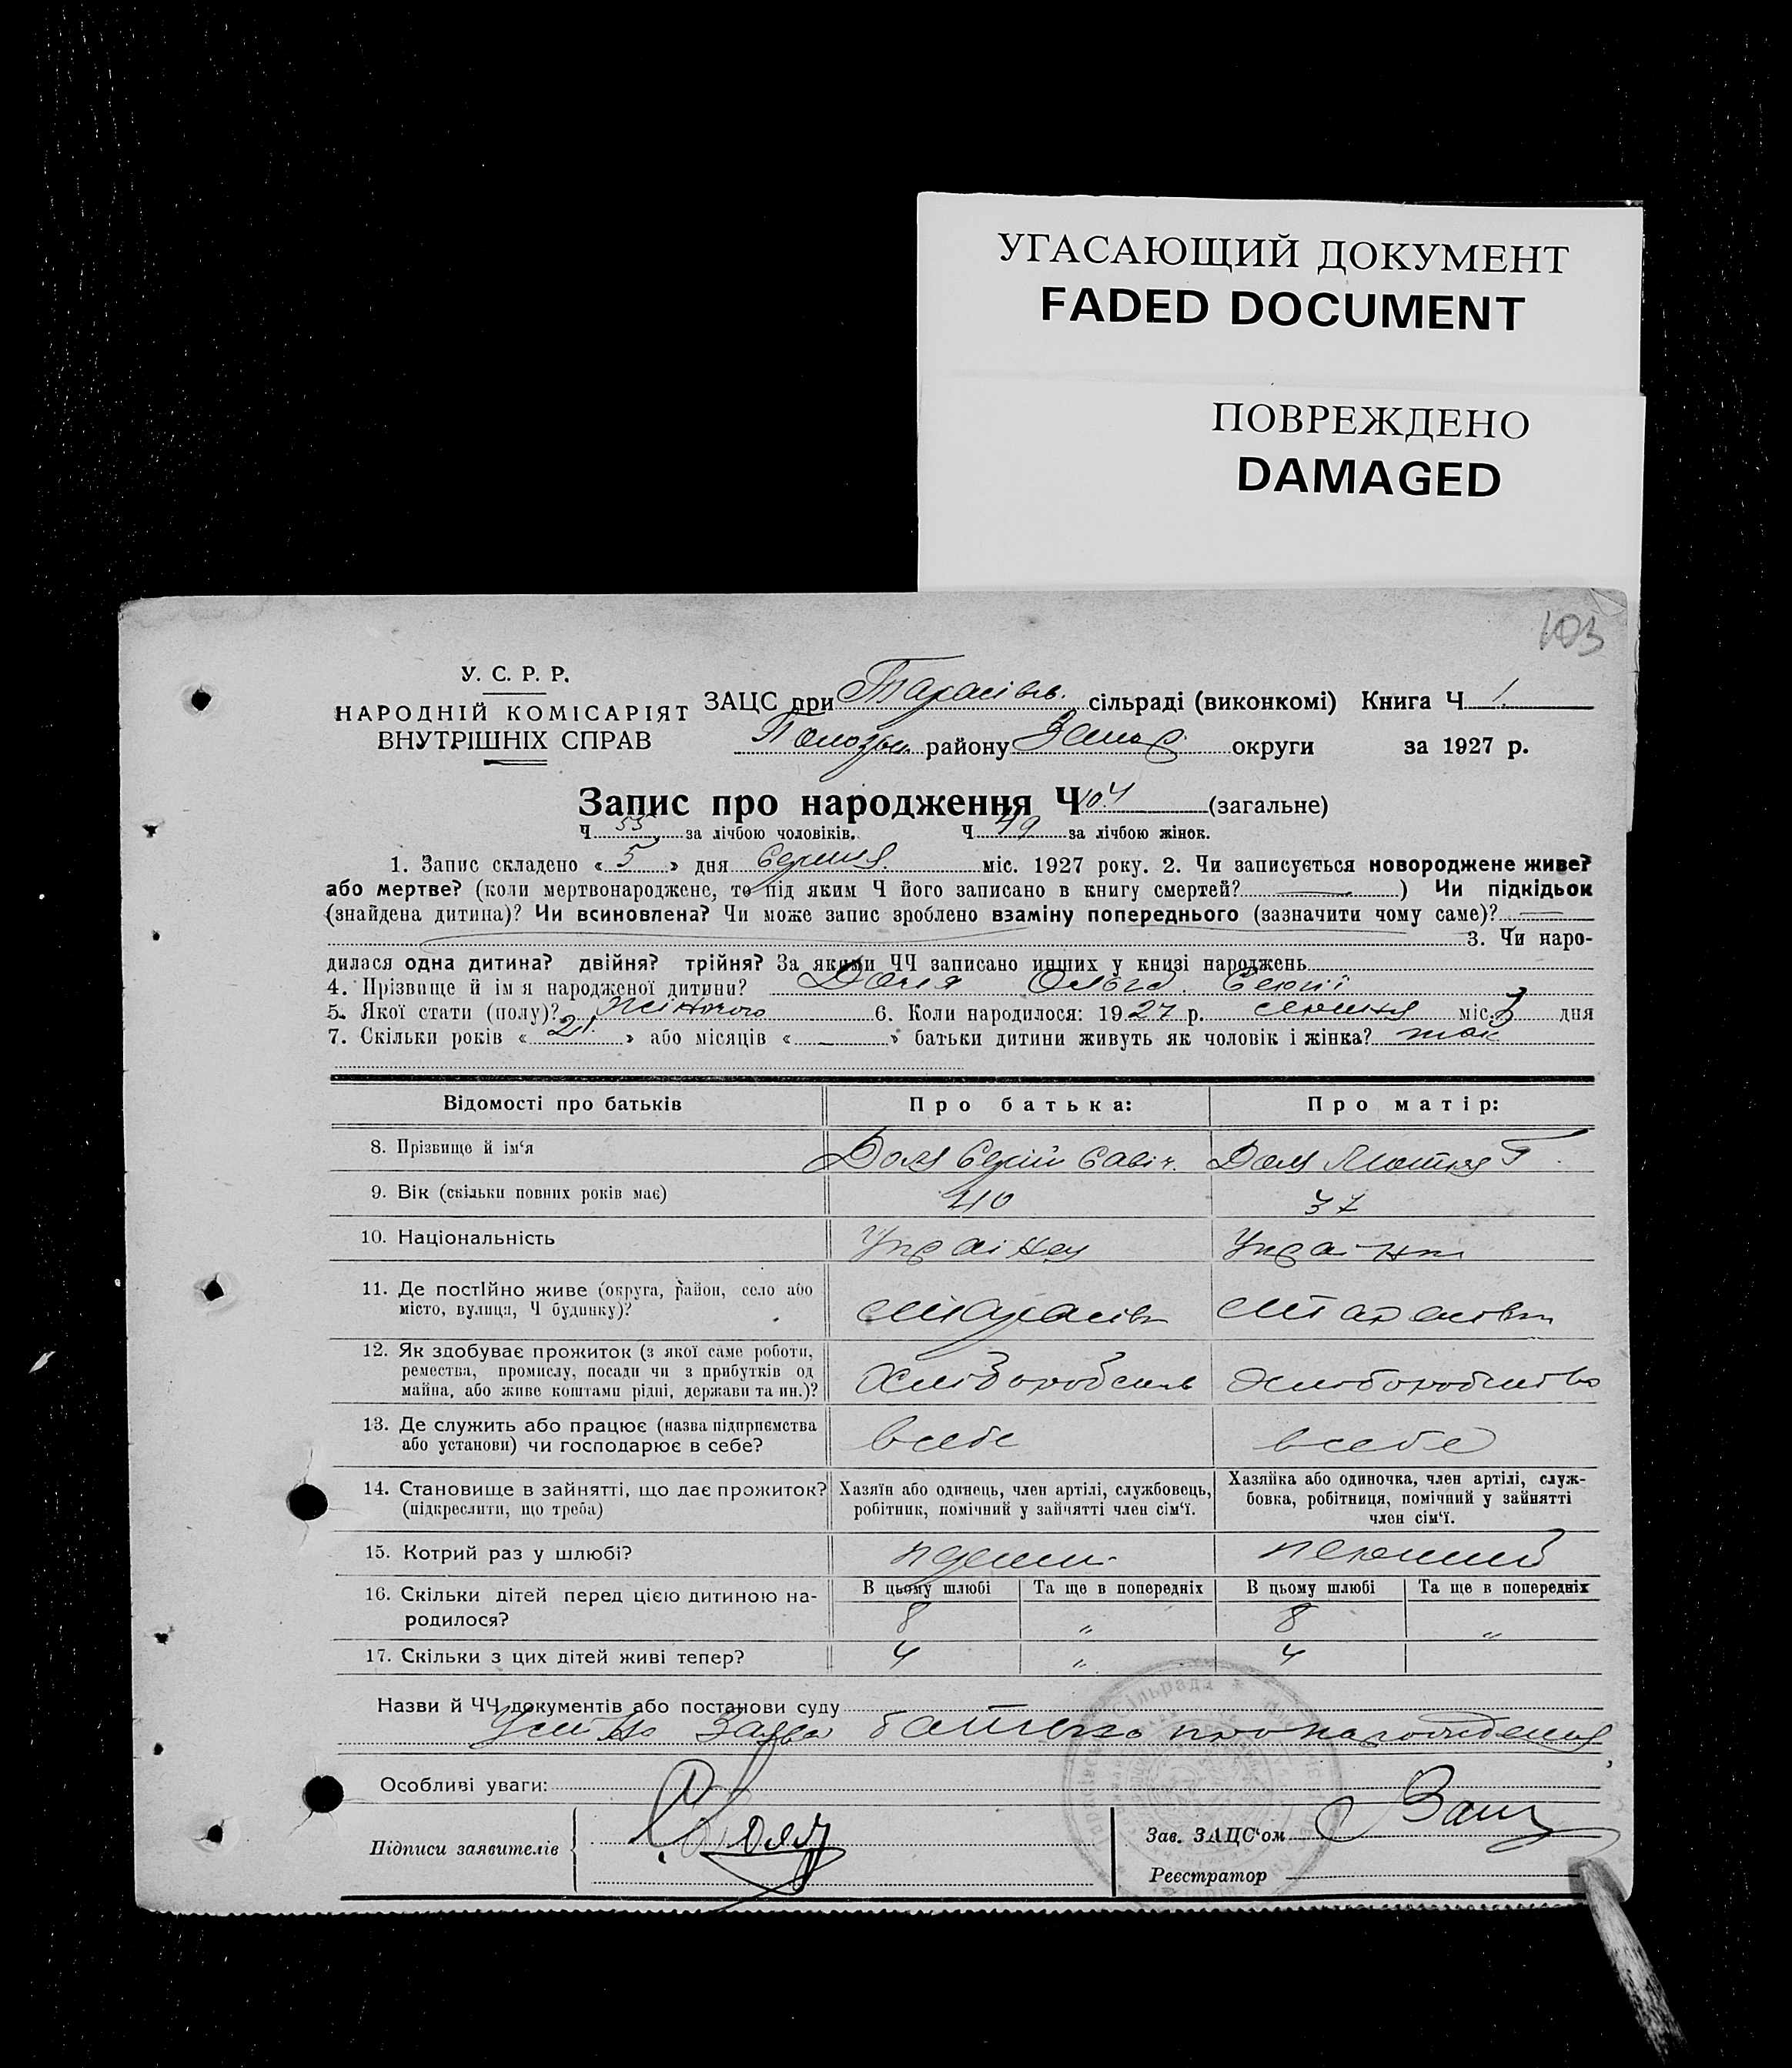 УГАСАЮЩИЙ ДОКУМЕНТ
FADED DOCUMENT
ПОВРЕЖДЕНО
DAMAGED
103
У. С. Р. Р.
НАРОДНІЙ КОМІСАРІЯТ
ВНУТРІШНІХ СПРАВ
ЗАЦС при Тарасівс. сільраді (виконкомі) Книга Ч 1.
району округи за 1927 р.
Запис про народження Ч 104 (загальне)
Ч 55 за лічбою чоловіків. Ч 49 за лічбою жінок.
1. Запис складено « 5 » дня Серпня міс. 1927 року. 2. Чи записується новороджене живе?
або мертве? (коли мертвонароджене, то під яким Ч його записано в книгу смертей? — ) Чи підкідьок
(знайдена дитина)? Чи всиновлена? Чи може запис зроблено взаміну попереднього (зазначити чому саме)? —
3. Чи наро-
дилася одна дитина? двійня? трійня? За якими ЧЧ записано инших у книзі народжень
4. Прізвище й ім я народженої дитини? Доля Ольга
5. Якої стати (полу)? Жіночого 6. Коли народилося: 1927 р. серпня міс. 3 дня
7. Скільки років « 21 » або місяців « — » батьки дитини живуть як чоловік і жінка? так
Відомості про батьків
Про батька:
Про матір:
8. Прізвище й ім‘я
Доля Сергій Савіч.
Доля Мотря Г.
9. Вік (скільки повних років має)
40
37
10. Національність
Українец
Українка
11. Де постійно живе (округа, район, село або
місто, вулиця, Ч будинку)?
с Тарасівка
с Тарасівка
12. Як здобуває прожиток (з якої саме роботи,
ремества, промислу, посади чи з прибутків од
майна, або живе коштами рідні, держави та ин.)?
Хлібороб
Хлиборобство
13. Де служить або працює (назва підприємства
або установи) чи господарює в себе?
всебе
всебе
14. Становище в зайнятті, що дає прожиток?
(підкреслити, що треба)
Хазяїн або одинець, член артілі, службовець,
робітник, помічний у зайнятті член сім‘ї.
Хазяйка або одиночка, член артілі, служ-
бовка, робітниця, помічний у зайнятті
член сім‘ї.
15. Котрий раз у шлюбі?
перший
16. Скільки дітей перед цією дитиною на-
родилося?
В цьому шлюбі
Та ще в попередніх
В цьому шлюбі
Та ще в попередніх
8 „ 8 „
17. Скільки з цих дітей живі тепер?
4 „ 4
Назви й ЧЧ документів або постанови суду
Усно Заява батька про народження
Особливі уваги:
Підписи заявителів
Доля
Зав. ЗАЦС‘ом
Реєстратор